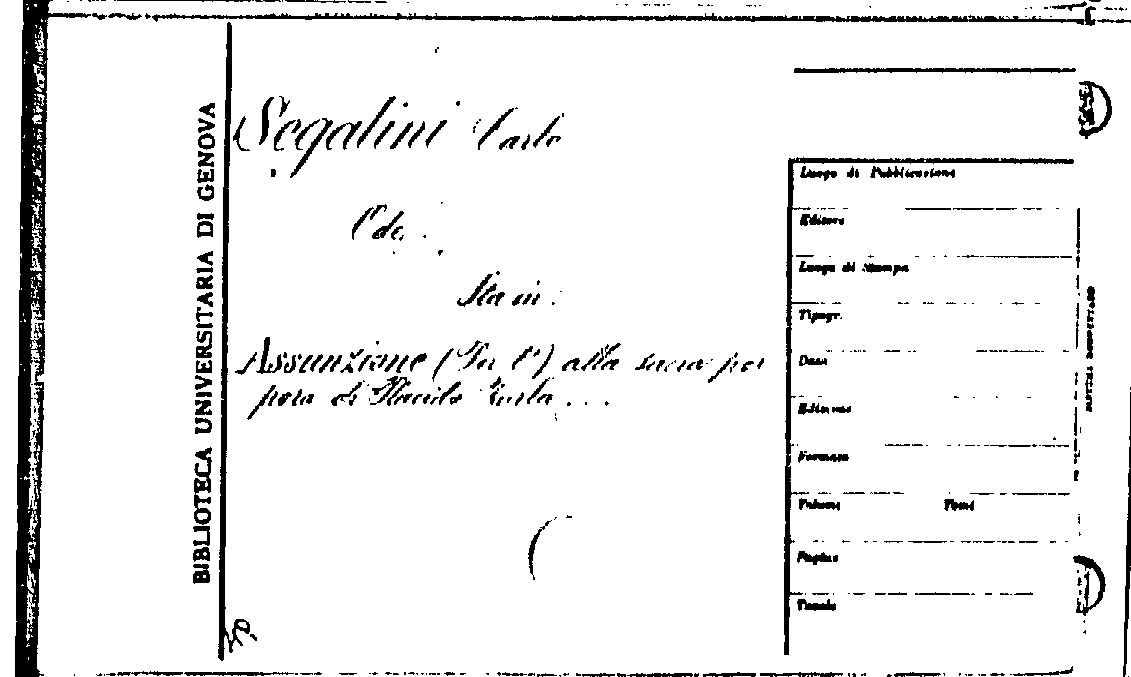 BIBLIOTECA UNIVERSITARIA DI GENOVA
Segalini Carlo
Ode.
Sta in:
Assunzione (Per l') alla sacra por
pora di Placido Zurla ...
Luogo di Pubblicazione
Editore
Luogo di Stampa
Tipogr.
Data
Edizione
Formato
Volumi Tomi
Pagine
Tavole